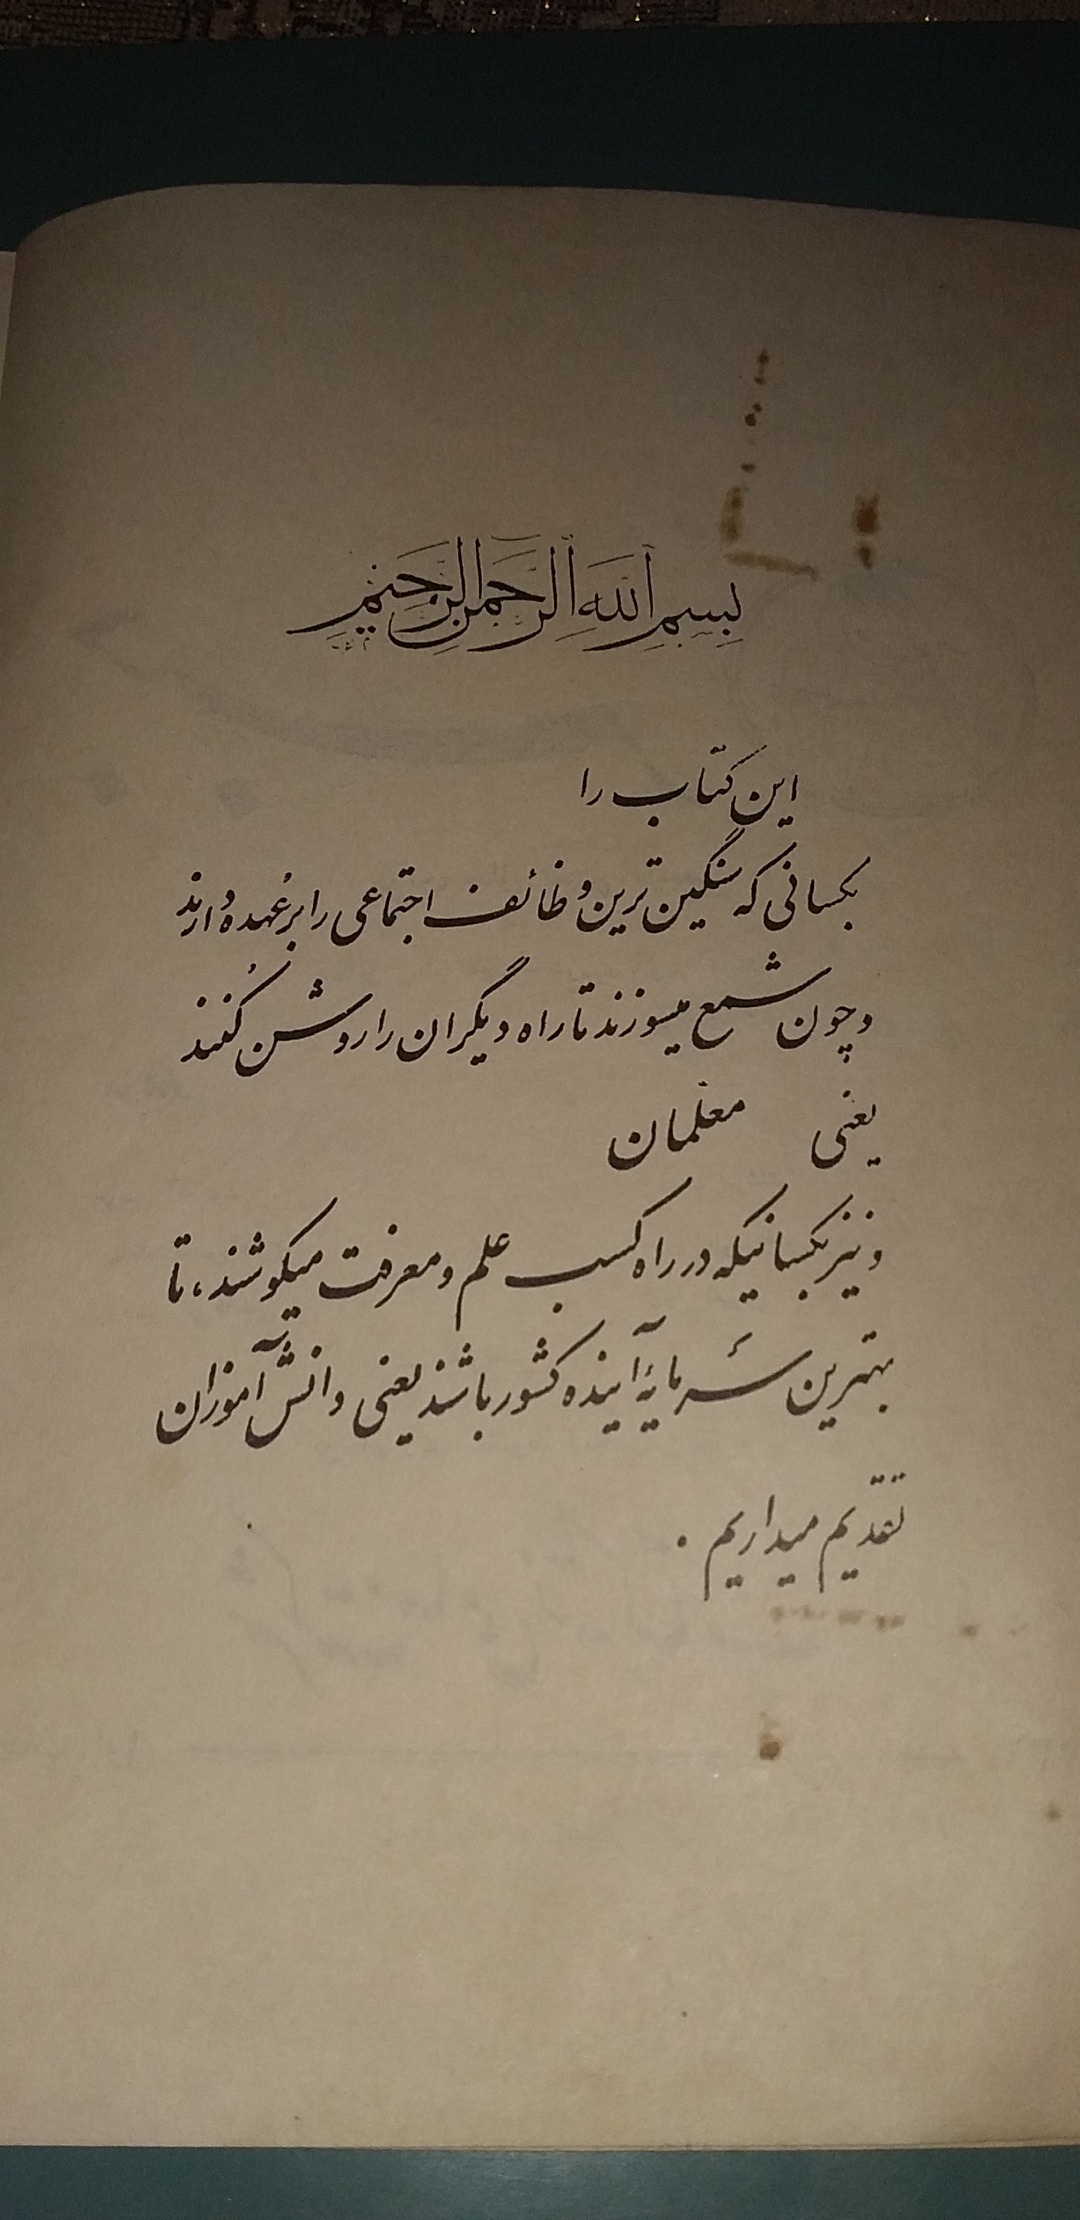 بسم الله الرحمن الرحیم
این کتاب را
بکسانی که سنگین ترین وظائف اجتماعی را بر عُهده دارند
و چون شمع میسوزند تا راه دیگران را روشن کُنند
یعنی معلمان
و نیز بکسانیکه در راه کسب علم و معرفت میکوشند، تا
بهترین سَرمایهٔ آینده کشور باشند یعنی دانش آموزان
تقدیم میداریم .